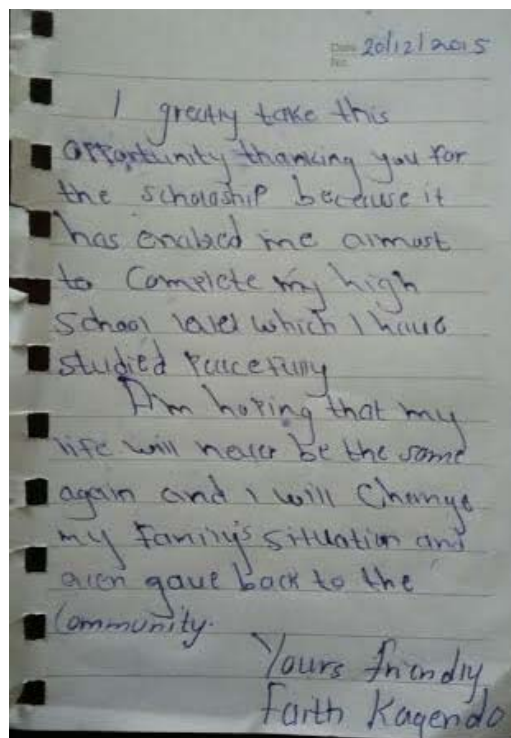 Date 20/12/2015
No.
I greatly take this
opportunity thanking you for
the scholaship because it
has enabled me almost
to complete my high
school level which I have
studied peacefully
Am hoping that my
life will never be the same
again and I will change
my family's situation and
even gave back to the
Community.
Yours friendly
Faith Kagendo